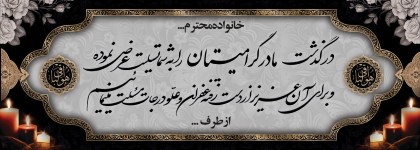 خانواده محترم ...
درگذشت مادر گرامیتان را به شما تسلیت عرض نموده
و برای آن عزیز از دست رفته غفران و علو درجات مسئلت می‌نمائیم
از طرف ...